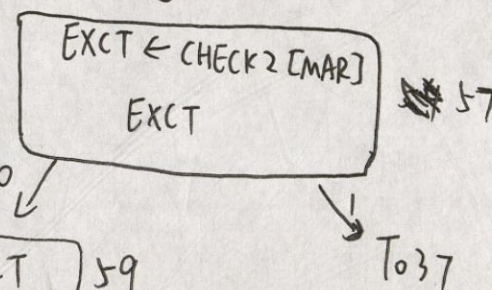 EXCT ← CHECK2 [MAR]
EXCT
57
0
1
T
59
To 37